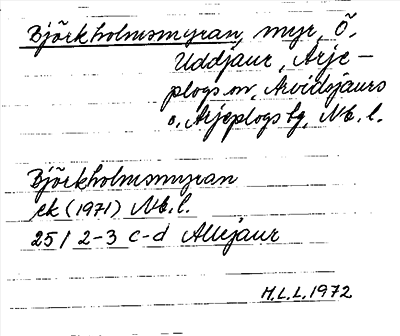 Björkholmsmyran, myr, Ö.
Uddjaur, Arje-
plogs sn, Arvidsjaurs
o. Arjeplogs tg, Nb. l.
Björkholmsmyran
ek (1971) Nb. l.
25 I 2-3 c-d Allejaur
H.L.L. 1972